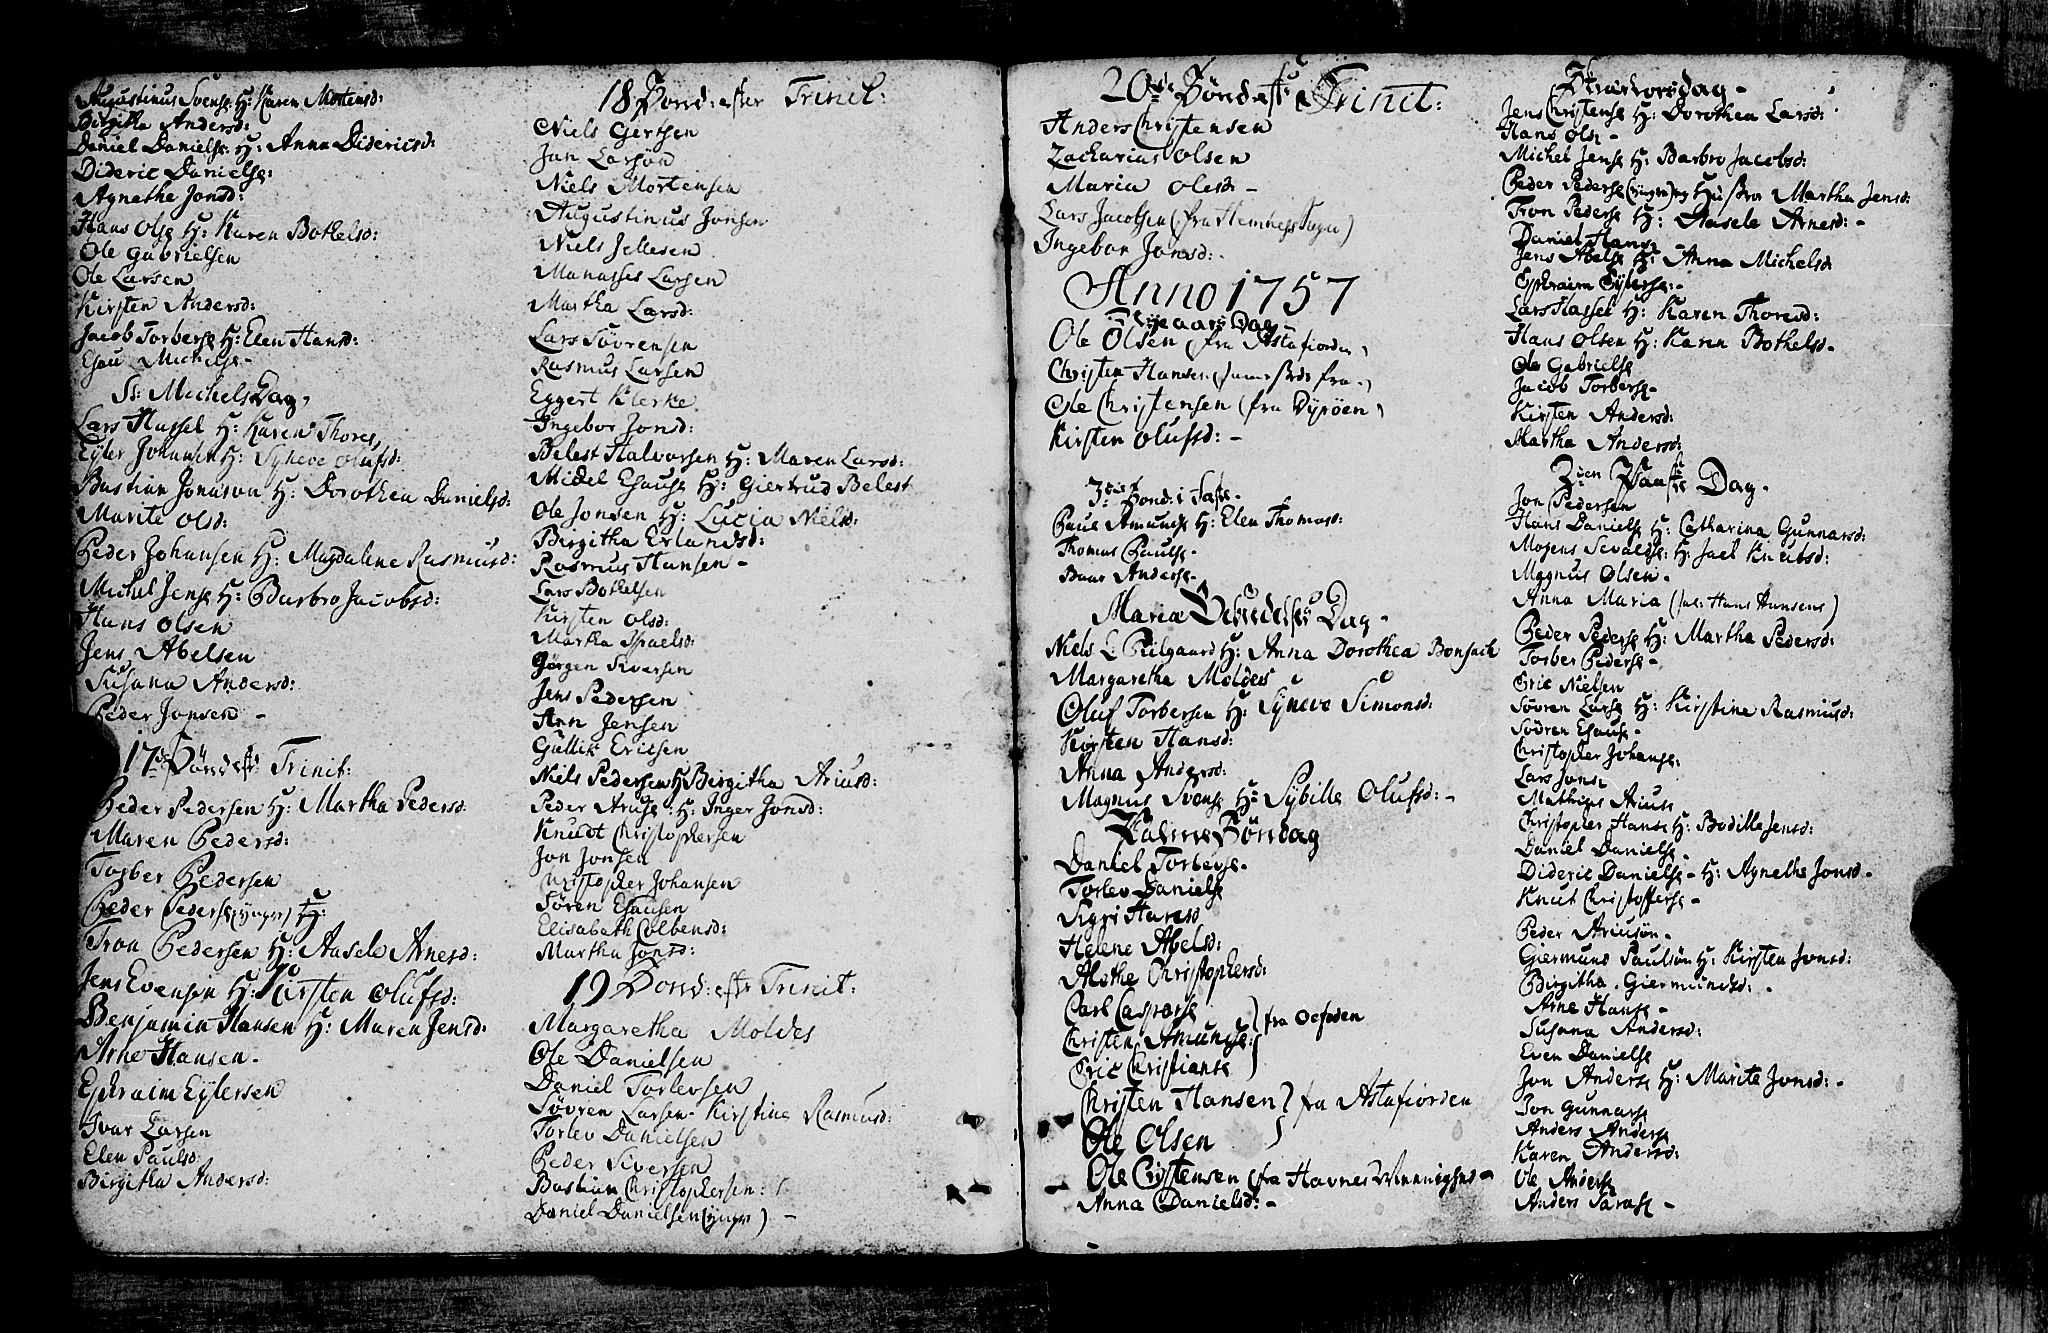 Augustinus Svense H: Karen Mortensd:
Birgitha Andersd:
Daniel Danielse H: Anna Didericsd:
Dideric Danielse:
Agnethe Jonsd:
Hans Olse H: Karen Bothelsd:
Ole Gabrielsen
Ole Larsen
Kirsten Andersd:
Jacob Torberse H: Elen Hansd:
Esau Michelse -
St: Michels Dag,
Lars Hassel H: Karen Thores
Eyler Johansen H: Syneve Olufsd:
Bastian Jonason H: Dorothea Danielsd:
Marite Olsd:
Peder Johansen H: Magdalene Rasmusd:
Michel Jense H: Barbro Jacobsd:
Hans Olsen
Jens Abelsen
Susana Andersd:
Peder Jonsen -
17de Sönd efter Trinit:
Peder Pedersen H: Martha Pedersd
Maren Pedersd:
Torber Pedersen
Peder Pederse (yngre) H:
Tron Pedersen H: Aasele Arnesd:
Jens Evensen H: Kirsten Olufsd:
Benjamin Hansen H: Maren Jensd:
Arne Hansen -
Ephraim Eylersen
Ivar Larsen
Elen Paulsd:
Birgitha Andersd:
18 Sönd: efter Trinit:
Niels Gertsen
Jan Larsön
Niels Mortensen
Augustinus Jonsen
Niels Jellesen
Manasses Larsen
Martha Larsd:
Lars Sövrensen
Rasmus Larsen
Eggert Klerke
Ingebor Jonsd:
Belest Halvorsen H: Maren Larsd:
Michel Esause H: Giertrud Belest
Ole Jonsen H: Lucia Nielsd:
Birgitha Erlandsd:
Rasmus Hansen -
Lars Bothelsen
Kirsten Olsd:
Martha Israelsd:
Jörgen Iversen
Jens Pedersen
Ann Jensen
Gullik Ericsen
Niels Pedersen H: Birgitha Ariusd:
Peder Ariuse H: Inger Jonsd:
Knudt Christophersen
Jon Jonsen
Christopher Johansen
Sören Esausen
Elisabeth Colbensd:
Martha Jonsd:
19 Sönd: efter Trinit:
Margaretha Moldes
Ole Danielsen
Daniel Torlevsen
Sövren Larsen - Kirstine Rasmusd:
Torlev Danielsen
Peder Siversen
Bastian Christophersen:
Daniel Danielsen (yngre) -
20de Sönd efter Trinit:
Anders Christensen
Zacharias Olsen
Maria Olesd -
Lars Jacobsen (fra Hemnes Sogn)
Ingebor Jonsd:
Anno 1757
Nye aars Dag -
Ole Olsen (fra Astafiorden)
Christen Hansen (samme stæds fra)
Ole Christensen (fra Dyröen)
Kirsten Olufsd: -
3die Sönd: i Faste -
Paul Amundse H: Elen Thomasd:
Thomas Paulse -
Baar Anderse -
Maria Bebudelses Dag -
Niels L: Pilgaard H: Anna Dorothea Bonsach
Margaretha Moldes
Oluf Torbersen H: Syneve Simonsd:
Kirsten Hansd:
Anna Andersd:
Magnus Svense H: Sybille Olufsd: -
Palme Söndag
Daniel Torberse -
Torlev Danielse
Sigri Haresd
Helene Abelsd:
Alethe Christophersd:
Carl Casparse
Christen Amundse: } fra Oefoden
Eric Christianse
Christen Hansen } fra Astafiorden
Ole Olsen
Ole Christensen (fra Havnes Menninghed -
Anna Danielsd: -
Skiærtorsdag -
Jens Christense H: Dorothea Larsd:
Hans Olse -
Michel Jense H: Barbro Jacobsd:
Peder Pederse (yngre) og Hustroe Martha Jensd:
Tron Pederse H: Aasele Arnesd: -
Daniel Hanse -
Jens Abelse H: Anna Michelsd
Ephraim Eylerse: -
Lars Hassel H: Karen Thoresd:
Hans Olsen H: Karen Bothelsd -
Ole Gabrielse
Jacob Torberse -
Kirsten Andersd:
Martha Andersd:
2den Paaske Dag -
Jon Pedersen
Hans Danielse H: Catharina Gunnarsd:
Mogens Sevaldse: H: Jael Knutsd:
Magnus Olsen -
Anna Maria (sal: Hans Hansens)
Peder Pederse H: Martha Pedersd:
Torber Pederse -
Eric Nielsen
Sövren Larse H: Kirstine Rasmusd:
Sövren Esause -
Christopher Johanse:
Lars Jonse
Mathias Ariuse
Christopher Hanse H: Bodille Jensd:
Daniel Danielse -
Dideric Danielse - H: Agnethe Jonsd -
Knut Christofferse -
Peder Ariusön -
Giermund Paulsön H: Kirsten Jonsd:
Birgitha Giermundsd: -
Arne Hanse -
Susana Andersd:
Even Danielse
Jon Anderse H: Marite Jonsd: -
Jon Gunnarse
Anders Anderse
Karen Andersd:
Ole Anderse
Anders Larase -